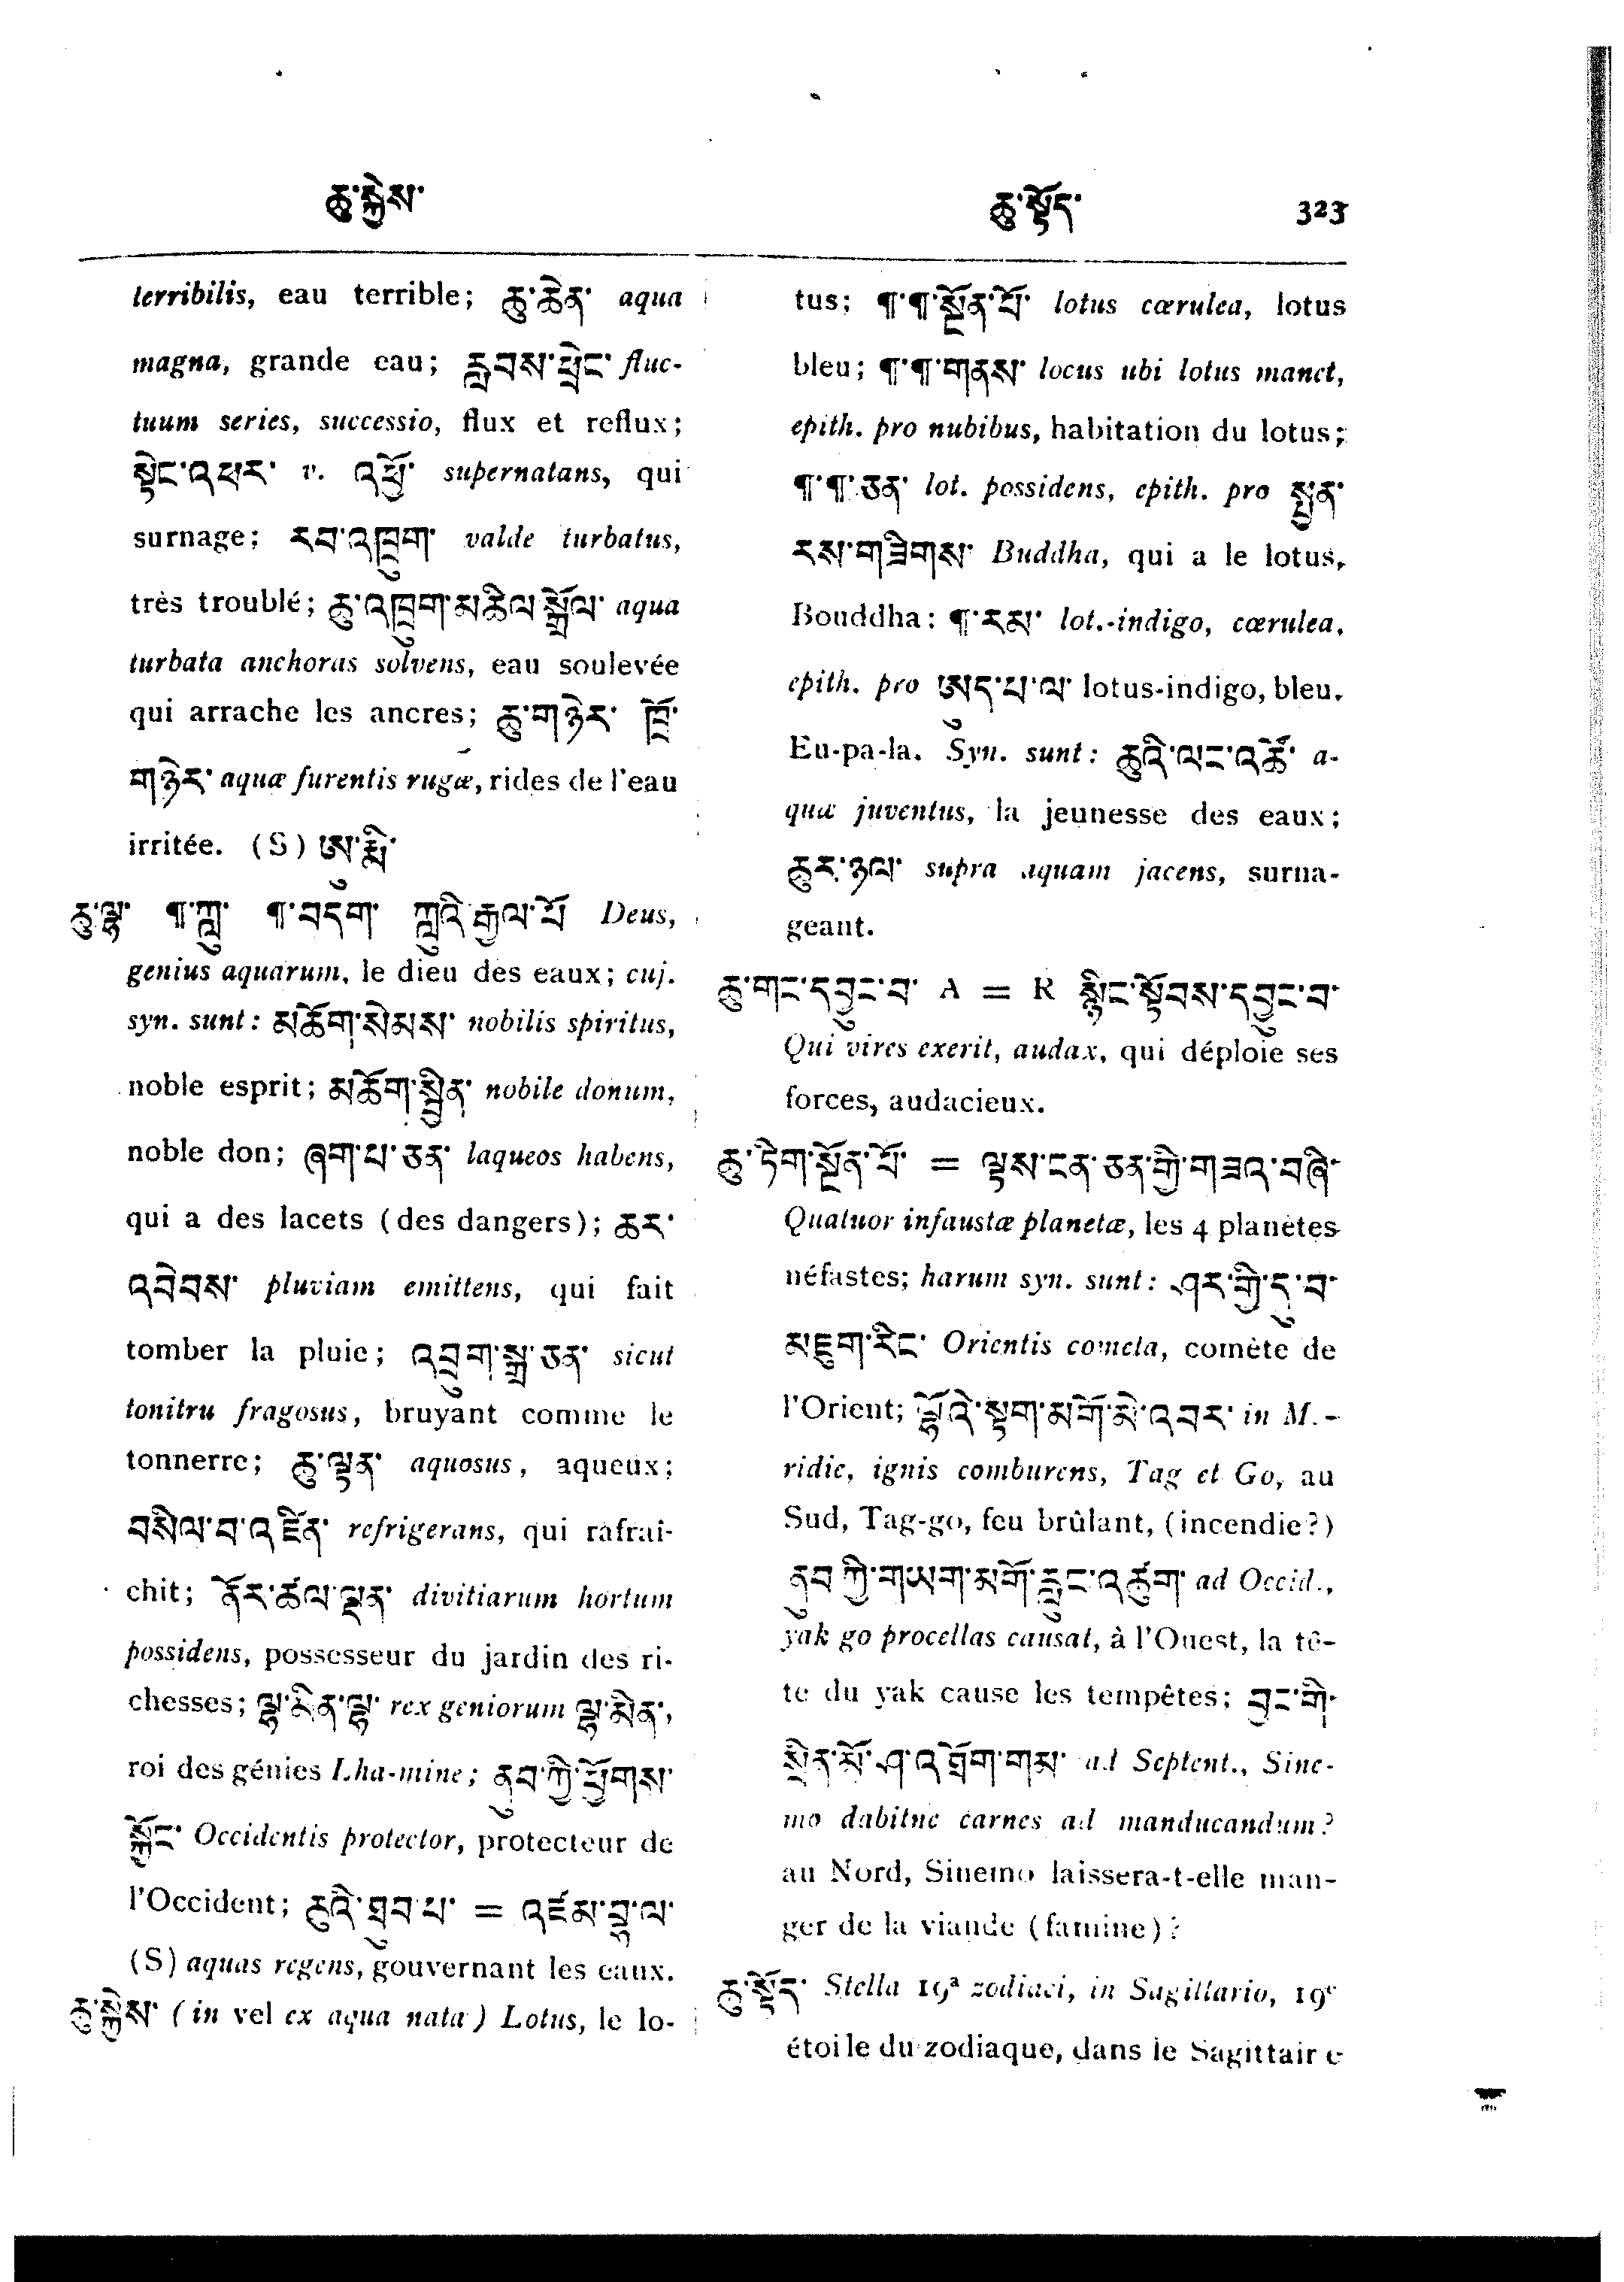 ཆུ་སྐྱེས་
ཆུ་སྟོད་ 323
terribilis, eau terrible; ཆུ་ཆེན་ aqua
magna, grande eau; རླབས་ཕྲེང་ fluc-
tuum series, successio, flux et reflux;
སྟེང་འཕར་ v. འཕྱོ་ supernatans, qui
surnage; རབ་འཁྲུག་ valde turbatus,
très troublé; ཆུ་འཁྲུག་མཆིལ་སྒྲོལ་ aqua
turbata anchoras solvens, eau soulevée
qui arrache les ancres; ཆུ་གཉེར་ ཁྲོ་
གཉེར་ aquæ furentis rugæ, rides de l'eau
irritée. (S)
ཆུ་ལྷ་ ¶་ཀླུ་ ¶་བདག་ ཀླུའི་རྒྱལ་པོ Deus,
genius aquarum, le dieu des eaux; cuj.
syn. sunt: མཆོག་སེམས་ nobilis spiritus,
noble esprit; མཆོག་སྦྱིན་ nobile donum,
noble don; ཞགཔ་ཅན་ laqueos habens,
qui a des lacets (des dangers); ཆར་
འབེབས་ pluviam emittens, qui fait
tomber la pluie; འབྲུག་སྒྲ་ཅན་ sicut
tonitru fragosus, bruyant comme le
tonnerre; ཆུ་ལྡན་ aquosus, aqueux;
བསིལ་བ་འཛིན་ refrigerans, qui rafraî-
chit; ནོར་ཚལ་ལྡན་ divitiarum hortum
possidens, possesseur du jardin des ri-
chesses; ལྷ་མིན་ལྷ་ rex geniorum ལྷ་མིན་,
roi des génies Lha-mine; ནུབ་ཀྱི་ཕྱོགས་
སྐྱོང་ Occidentis protector, protecteur de
l'Occident; ཆུའི་ཐུབ་པ་ =
(S) aquas regens, gouvernant les eaux.
ཆུ་སྐྱེས་ (in vel ex aqua nata) Lotus, le lo-
tus; ¶་¶་སྔོན་པོ་ lotus cœrulea, lotus
bleu; ¶་¶་གནས་ locus ubi lotus manet,
epith. pro nubibus, habitation du lotus;
¶་¶་ཅན་ lot. possidens, epith. pro སྤྱན་
རས་གཟིགས་ Buddha, qui a le lotus,
Bouddha: ¶་རམ་ lot.-indigo, cœrulea,
epith. pro ཨུད་པ་ལ་ lotus-indigo, bleu.
Eu-pa-la. Syn. sunt: ཆུའི་ལང་འཚོ་ a-
quæ juventus, la jeunesse des eaux;
ཆུར་ཉལ་ supra aquam jacens, surna-
geant.
ཆུ་གང་དབྱུང་བ་ A = R སྙིང་སྟོབས་དབྱུང་བ་
Qui vires exerit, audax, qui déploie ses
forces, audacieux.
ཆུ་ཏིག་སྔོན་པོ་ = ལྟས་ངན་ཅན་གྱི་གཟའ་བཞི་
Quatuor infaustæ planetæ, les 4 planètes
néfastes; harum syn. sunt: ཤར་གྱི་དུ་བ་
མཇུག་རིང་ Orientis cometa, comète de
l'Orient; ལྷོའི་སྟག་མགོ་མེ་འབར་ in M.-
ridie, ignis comburens, Tag et Go, au
Sud, Tag-go, feu brûlant, (incendie?)
ནུབ་ཀྱི་གཡག་མགོ་རླུང་འཚུག་ ad Occid.,
yak go procellas causat, à l'Ouest, la tê-
te du yak cause les tempêtes; བྱང་གི་
སྲིན་མོ་ཤ་འགྲོག་གམ་ ad Septent., Sine-
mo dabitne carnes ad manducandum?
au Nord, Sinemo laissera-t-elle man-
ger de la viande (famine)?
ཆུ་སྟོད་ Stella 19ª zodiaci, in Sagittario, 19ᵉ
étoile du zodiaque, dans le Sagittaire